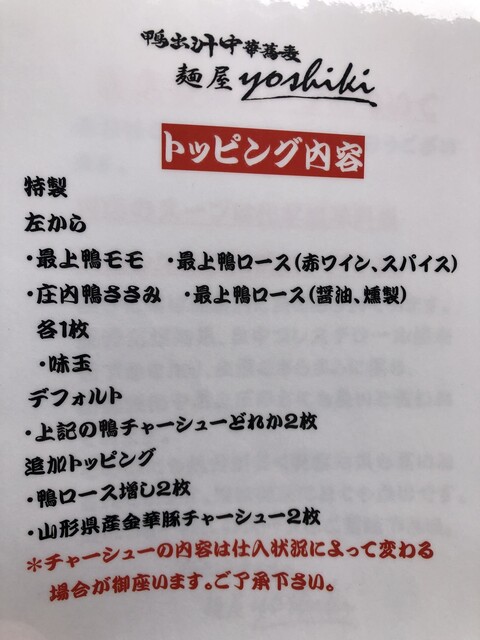 鴨出汁中華蕎麦
麺屋yoshiki
トッピング内容
特製
左から
・最上鴨モモ ・最上鴨ロース(赤ワイン、スパイス)
・庄内鴨ささみ ・最上鴨ロース(醤油、燻製)
各1枚
・味玉
デフォルト
・上記の鴨チャーシューどれか2枚
追加トッピング
・鴨ロース増し2枚
・山形県産金華豚チャーシュー2枚
＊チャーシューの内容は仕入状況によって変わる
場合が御座います。ご了承下さい。